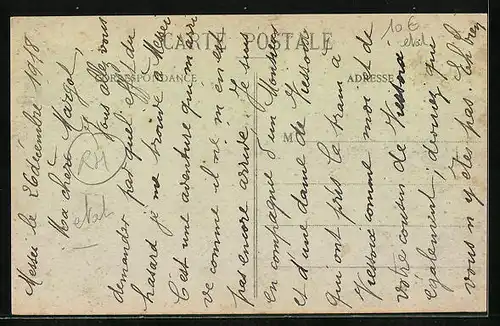 CARTE POSTALE
CORRESPONDANCE
ADRESSE
M
10 €
etat
RH
etat
Messei le 26 décembre 1918
Ma chère Margot,
Vous allez vous
demander par quel effet du
hasard je me trouve à Messei
C'est une aventure qui m'arri
ve comme il ne m'en est
pas encore arrivé. Je suis
en compagnie d'un Monsieur
et d'une dame de Viessoix
qui ont pris le train à
Viessoix comme moi et de
votre cousin de Viessoix
également, devinez qui
vous n'y êtes pas. Eh bien